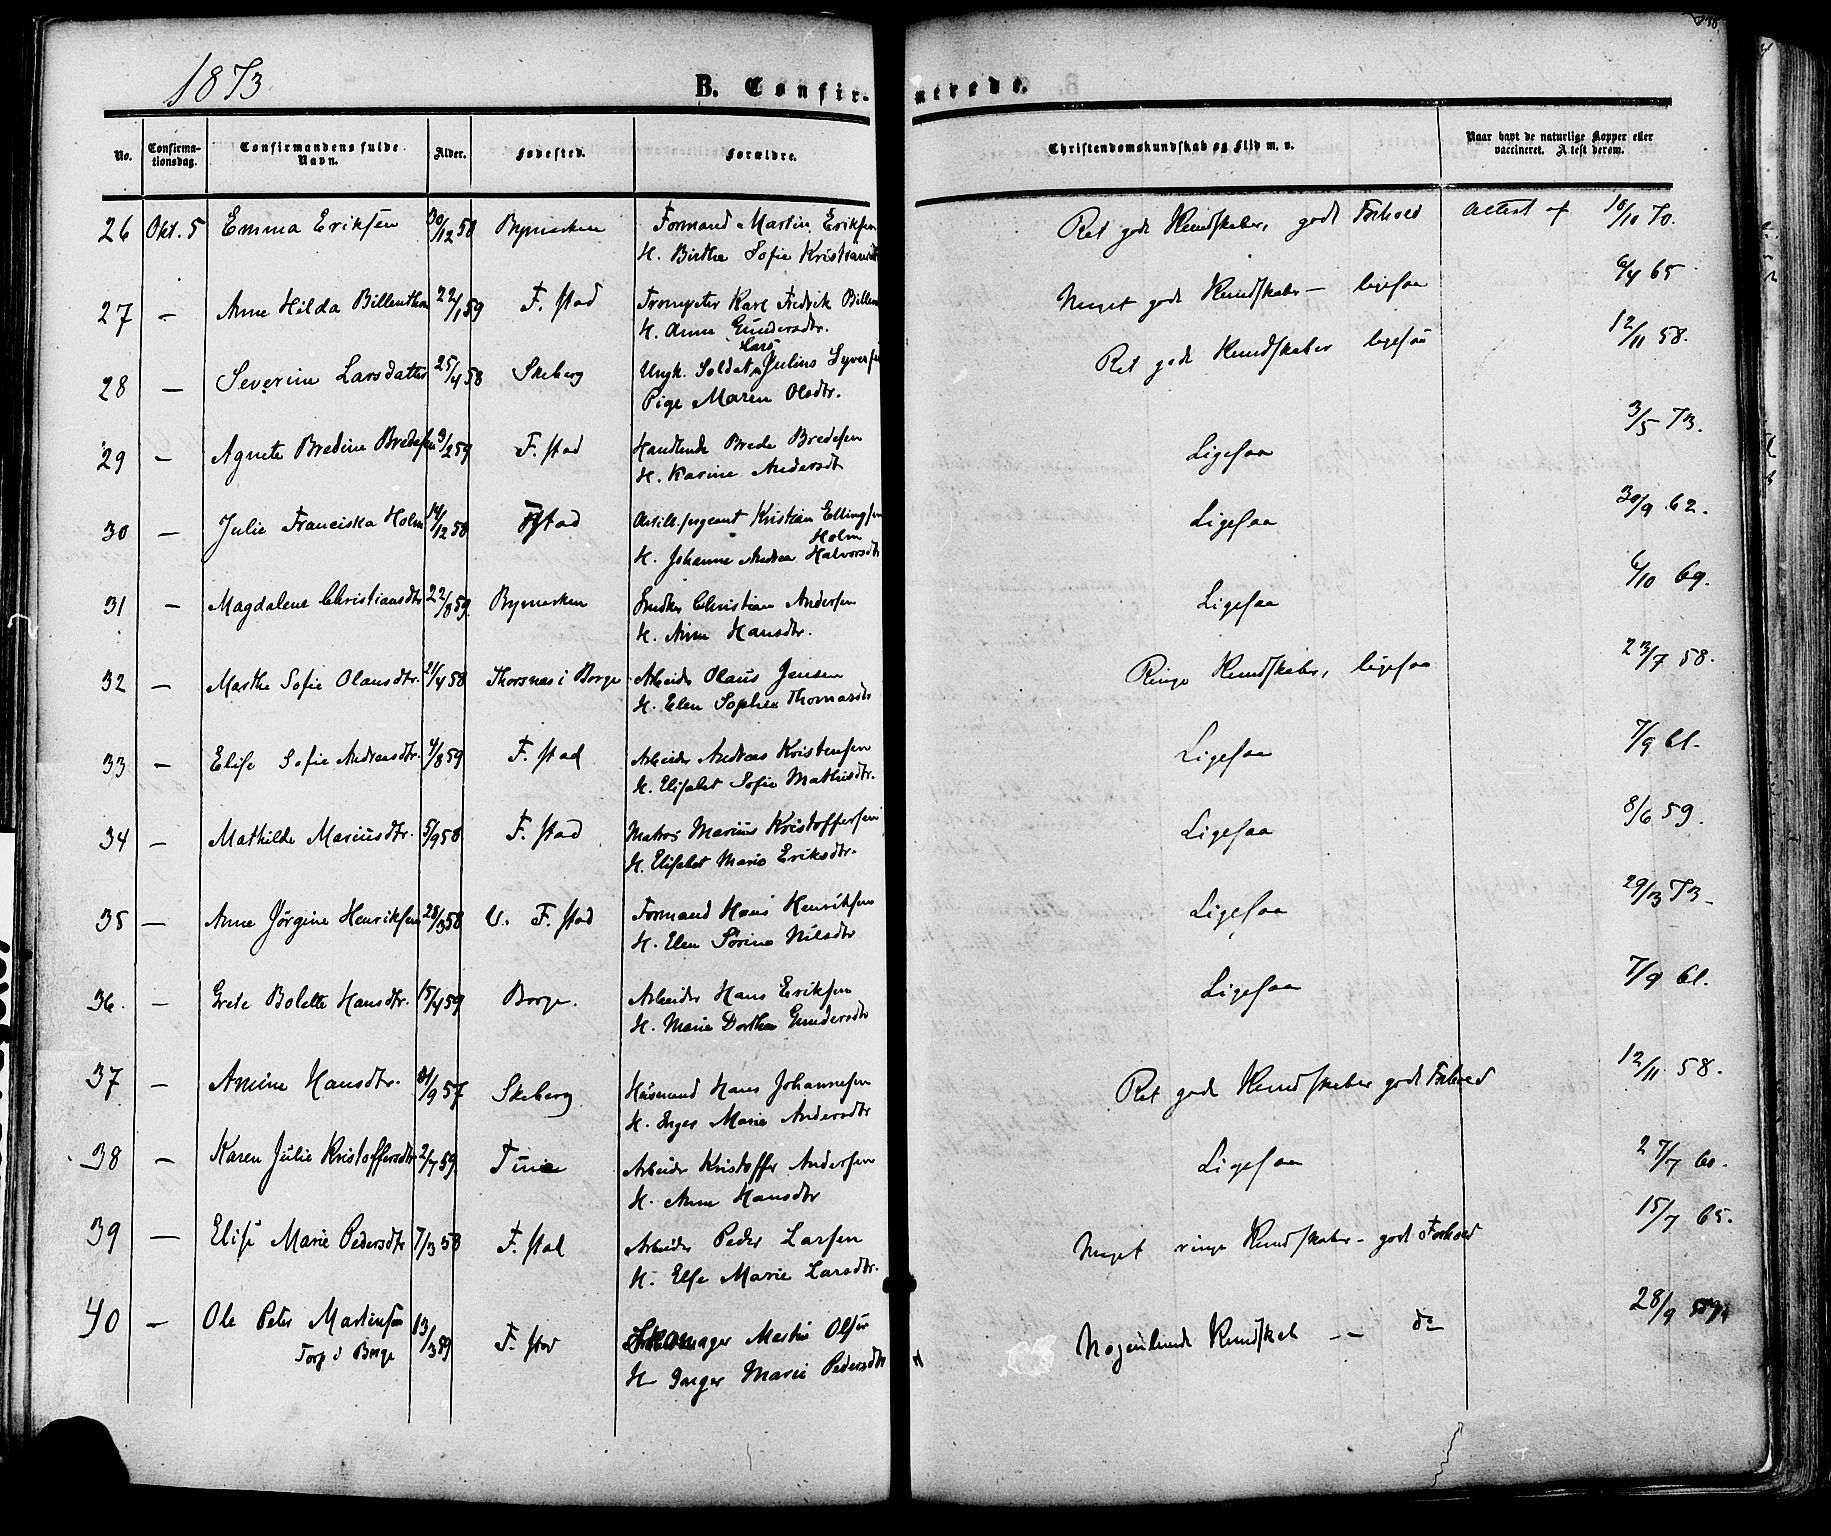 1873
B. Confirmerede.
No. Confirmationsdag. Confirmandens fulde Navn. Alder. Fødested. Forældre. Christendomskundskab og Flid m. v. Naar havt de naturlige Kopper eller vaccineret. Attest derom.
26 Okt. 5 Emma Eriksen 30/12 58 Bymarken Formand Martin Eriksen Ret gode Kundskaber, godt Forhold Attest af 10/10 70.
H. Birthe Sofie Kristiansdtr
27 — Anne Hilda Billenthon 22/1 59 F.stad Trompeter Karl Fredrik Billen Meget gode Kundskaber — ligesaa 6/4 65
H. Anne Gundersdtr.
28 — Severine Larsdatter 25/4 58 Skeberg Ungk. Soldat Lars Julius Syversen Ret gode Kundskaber ligesaa 12/11 58.
Pige Maren Olsdtr.
29 — Agnete Bredine Bredesen 9/2 59 F.stad Handlende Brede Bredesen Ligesaa 3/5 73.
H. Karine Andersdt
30 — Julie Franciska Holm 14/12 58 F.stad Artill.sergeant Kristian Ellingsen Holm Ligesaa 30/9 62.
H. Johanne Andrea Halvorsdtr
31 — Magdalene Christiansdtr 22/8 59 Bymarken Snedker Christian Andersen Ligesaa 6/10 69.
H. Anne Hansdtr.
32 — Marthe Sofie Olausdtr. 21/4 58 Thorsnæs i Borge Arbeider Olaus Jensen Ringe Kundskaber, ligesaa 23/7 58.
H. Elen Sophia Thomasdtr
33 — Elise Sofie Andreasdtr. 4/8 59 F.stad Arbeider Andreas Kristensen Ligesaa 7/9 61.
H. Elisabet Sofie Mathisdtr.
34 — Mathilde Mariusdtr. 5/9 58 F.stad Matros Marius Kristoffersen Ligesaa 8/6 59.
H. Elisabet Marie Eriksdtr.
35 — Anne Jørgine Henriksen 28/3 58 V. F.stad Formand Hans Henriksen Ligesaa 29/3 73
H. Elen Sørine Nilsdtr
36. — Grete Bolette Hansdtr. 15/4 59 Borge. Arbeider Hans Eriksen Ligesaa 7/9 61.
H. Marie Dorthea Gundersdtr
37 — Amine Hansdtr. /9 57 Skeberg Husmand Hans Johannesen Ret gode Kundskaber godt Forhold 12/11 58.
H. Inger Marie Andersdtr
38 — Karen Julie Kristoffersdtr 2/7 59 Tune Arbeider Kristoffer Andersen Ligesaa 27/7 60.
H. Anne Hansdtr
39 — Elise Marie Pedersdtr 7/3 58 F.stad Arbeider Peder Larsen Meget ringe Kundskaber - godt Forhold 15/7 65.
H. Else Marie Larsdtr.
40 — Ole Peter Martinsen 13/3 59 F.stad Skomager Martin Olsen Nogenlunde Kundskab — do 28/9 59.
Torp i Borge H. Inger Marie Pedersdtr